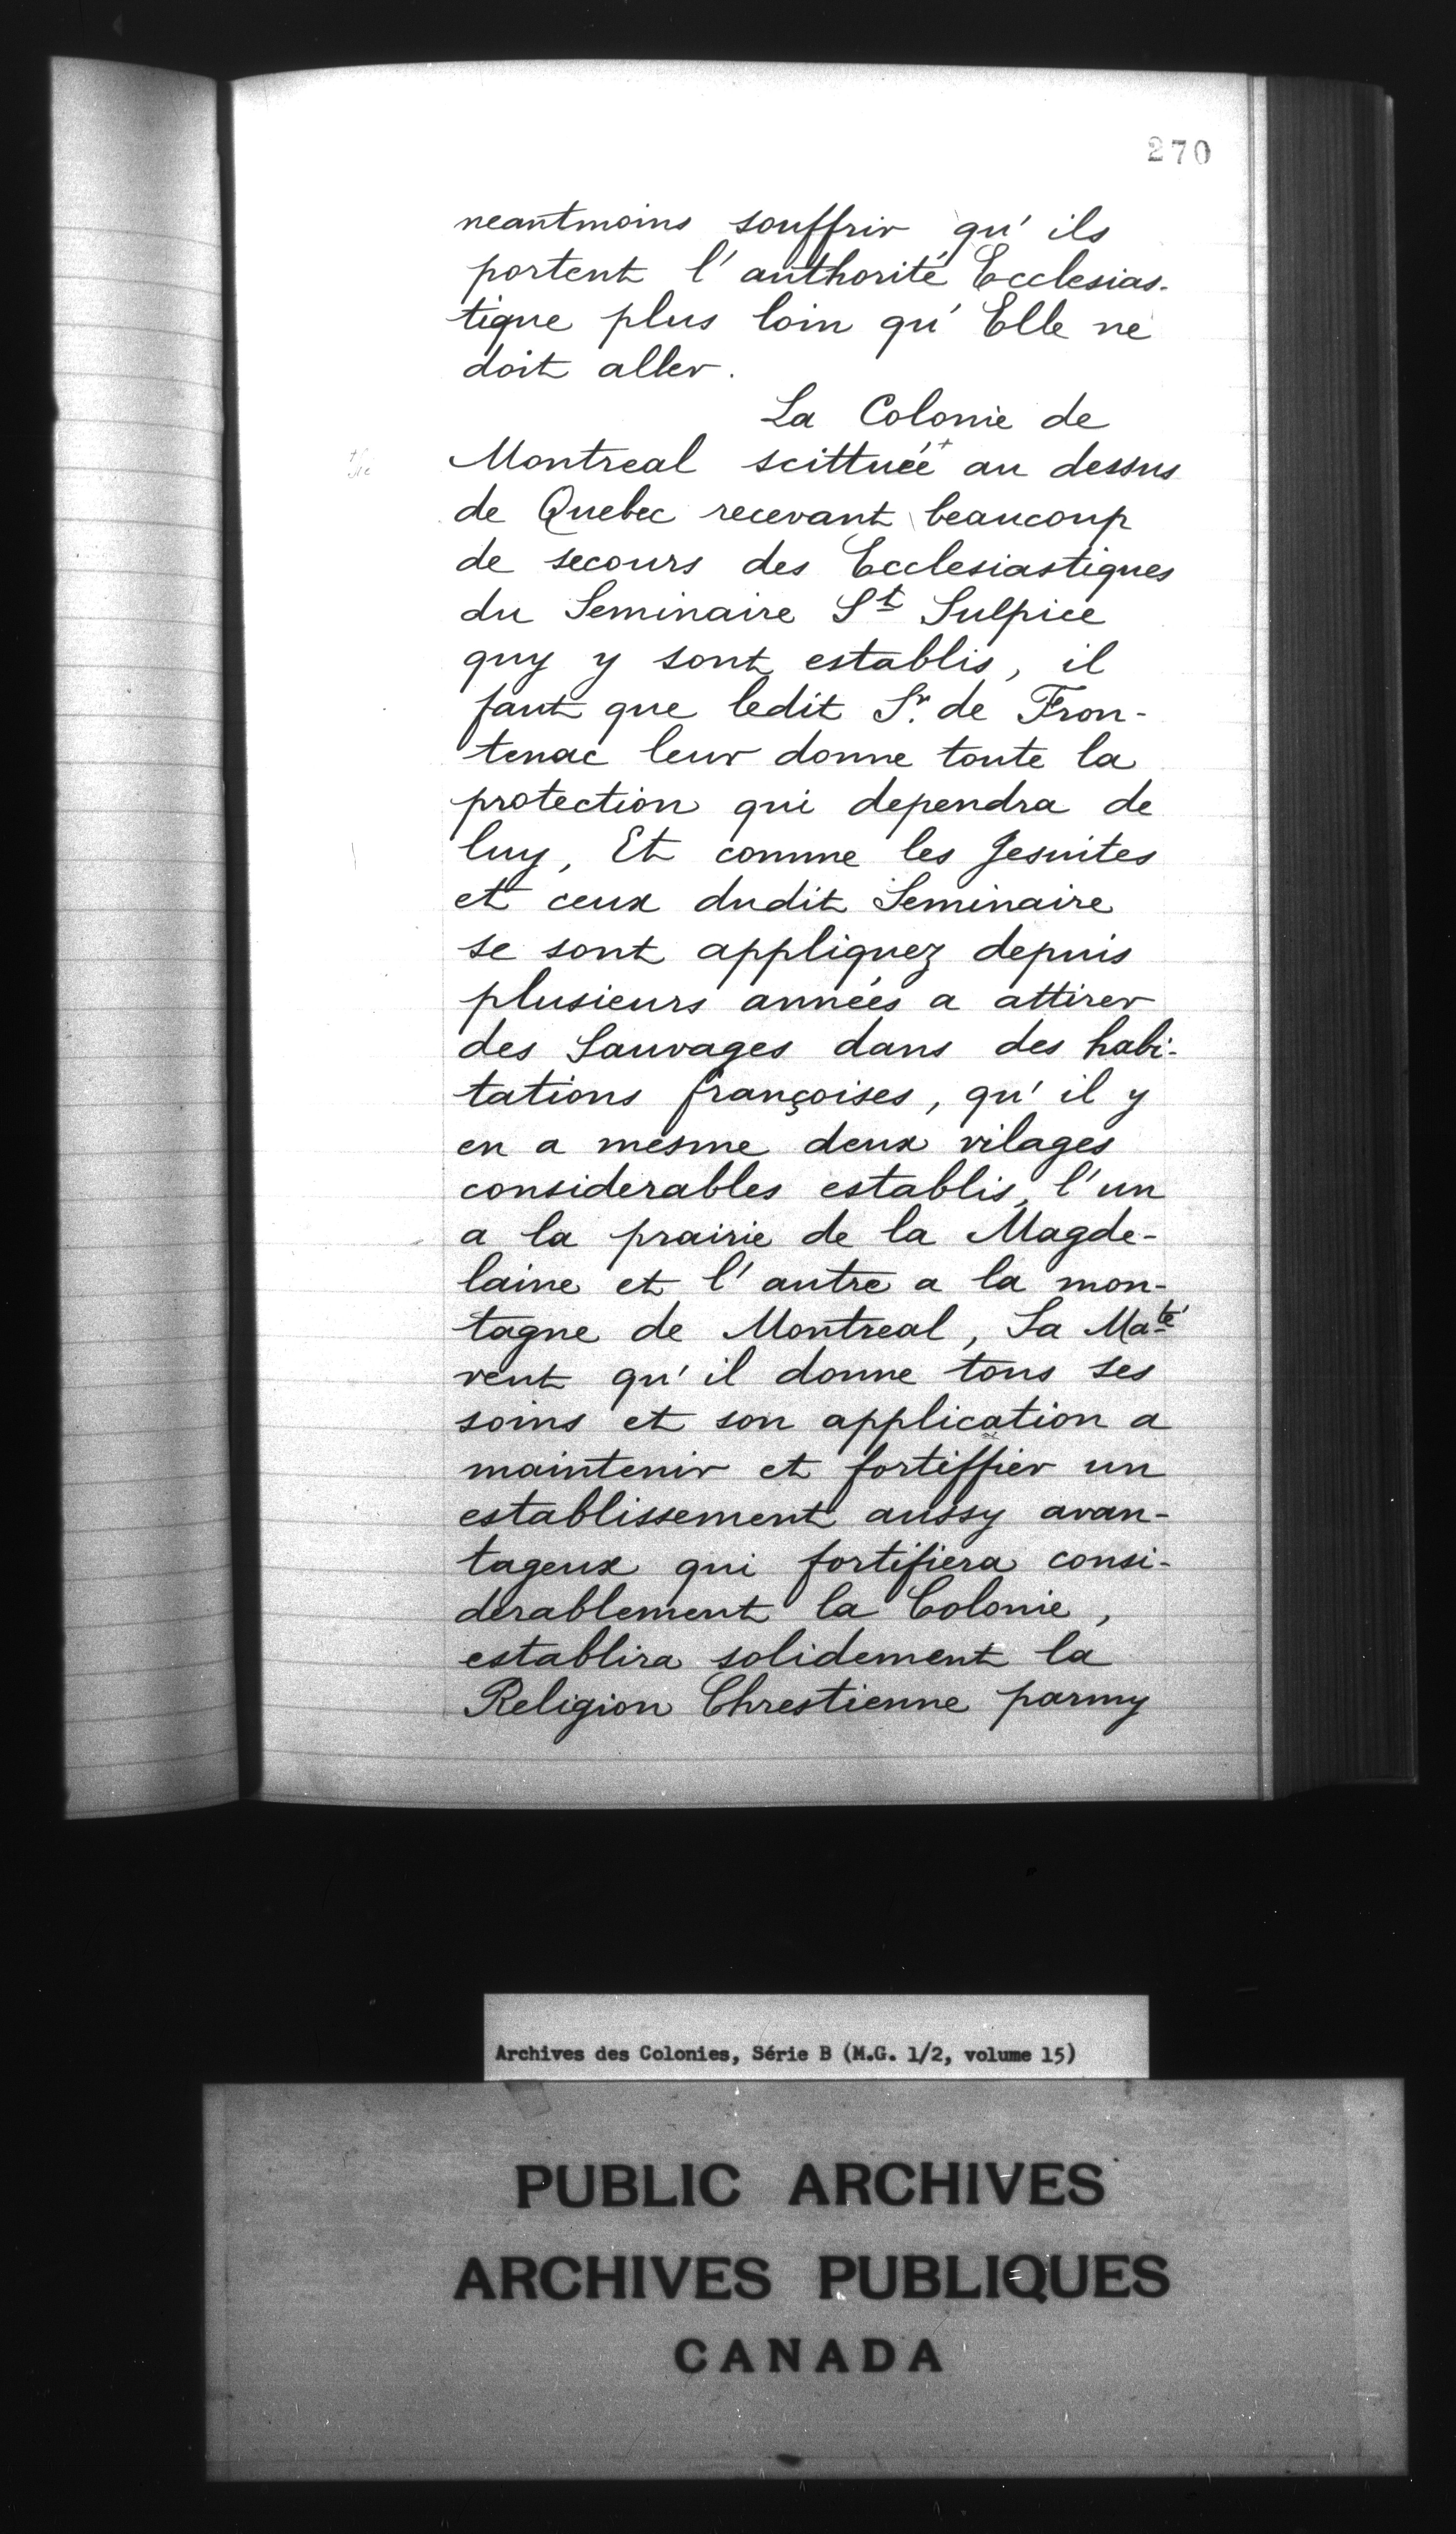 270
neantmoins souffrir qu'ils
portent l'authorité Ecclesias-
tique plus loin qu'Elle ne
doit aller.
La Colonie de
Montreal scittuéé + au dessus
de Quebec recevant beaucoup
de secours des Ecclesiastiques
du Seminaire St Sulpice
quy y sont establis, il
faut que ledit Sr. de Fron-
tenac leur donne toute la
protection qui dependra de
luy, Et comme les Jesuites
et ceux dudit Seminaire
se sont appliquez depuis
plusieurs années a attirer
des Sauvages dans des habi-
tations françoises, qu'il y
en a mesme deux vilages
considerables establis, l'un
a la prairie de la Magde-
laine et l'autre a la mon-
tagne de Montreal, Sa Maté
veut qu'il donne tous ses
soins et son application a
maintenir et fortiffier un
establissement aussy avan-
tageux qui fortifiera consi-
derablement la Colonie,
establira solidement la
Religion Chrestienne parmy
Archives des Colonies, Série B (M.G. 1/2, volume 15)
PUBLIC ARCHIVES
ARCHIVES PUBLIQUES
CANADA